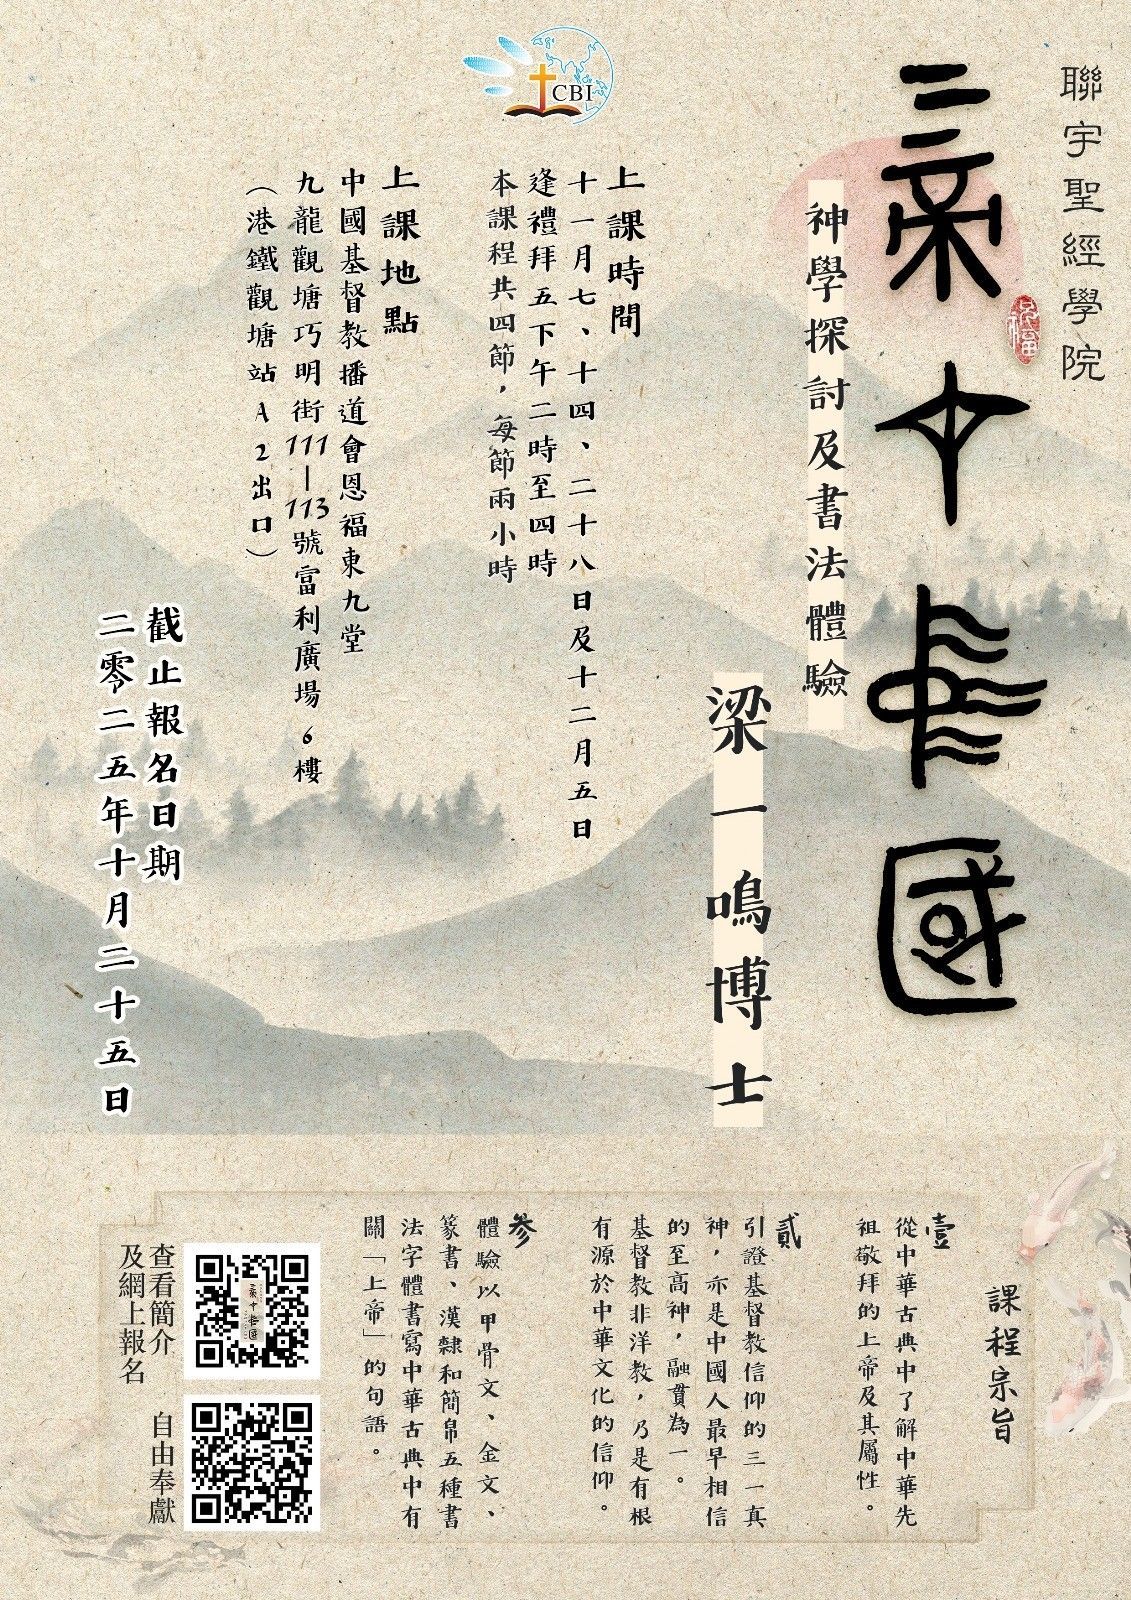 聯宇聖經學院
上帝在中國
神學探討及書法體驗
梁一鳴博士
CBI
上課時間
十一月七、十四、二十八日及十二月五日
逢禮拜五下午二時至四時
本課程共四節，每節兩小時
上課地點
中國基督教播道會恩福東九堂
九龍觀塘巧明街111－113號富利廣場6樓
（港鐵觀塘站A2出口）
截止報名日期
二零二五年十月二十五日
課程宗旨
壹
從中華古典中了解中華先
祖敬拜的上帝及其屬性。
貳
引證基督教信仰的三一真
神，亦是中國人最早相信
的至高神，融貫為一。
基督教非洋教，乃是有根
有源於中華文化的信仰。
參
體驗以甲骨文、金文、
篆書、漢隸和簡帛五種書
法字體書寫中華古典中有
關「上帝」的句語。
查看簡介
及網上報名
自由奉獻